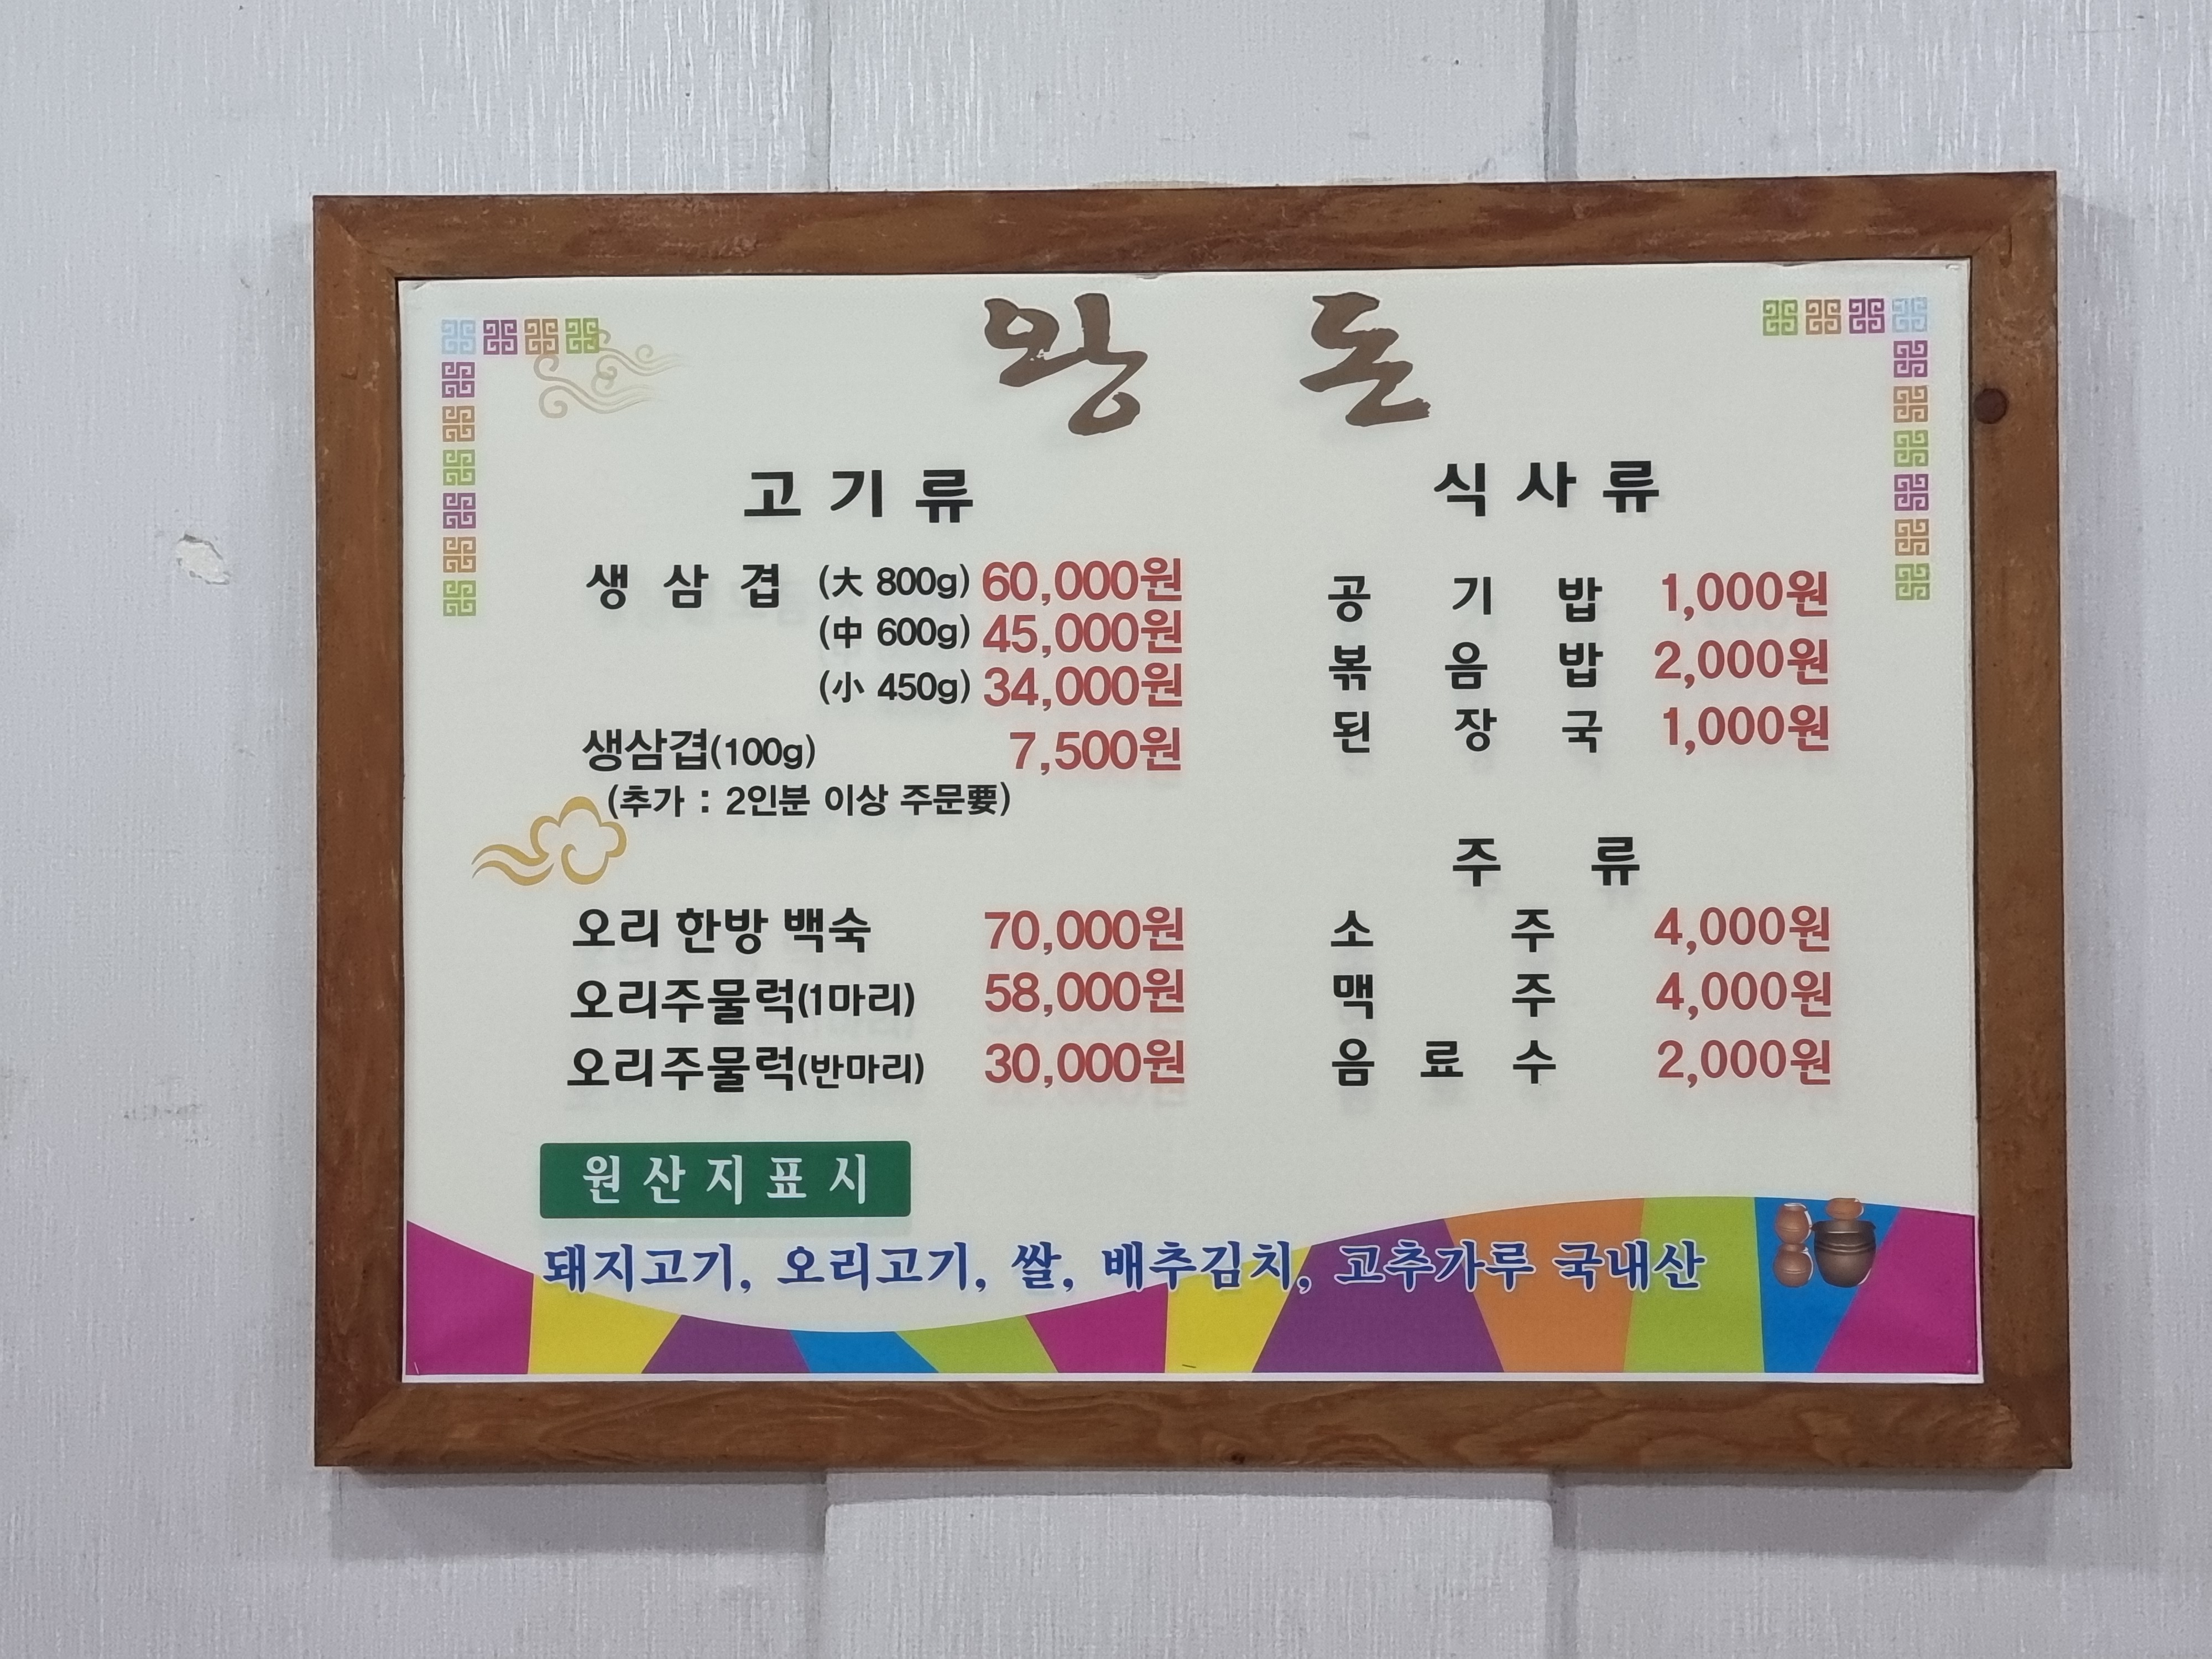 왕 돈
고기류
생 삼 겹 (大 800g) 60,000원
(中 600g) 45,000원
(小 450g) 34,000원
생삼겹(100g) 7,500원
(추가 : 2인분 이상 주문要)
오리 한방 백숙 70,000원
오리주물럭(1마리) 58,000원
오리주물럭(반마리) 30,000원
식사류
공 기 밥 1,000원
볶 음 밥 2,000원
된 장 국 1,000원
주 류
소 주 4,000원
맥 주 4,000원
음 료 수 2,000원
원산지표시
돼지고기, 오리고기, 쌀, 배추김치, 고추가루 국내산